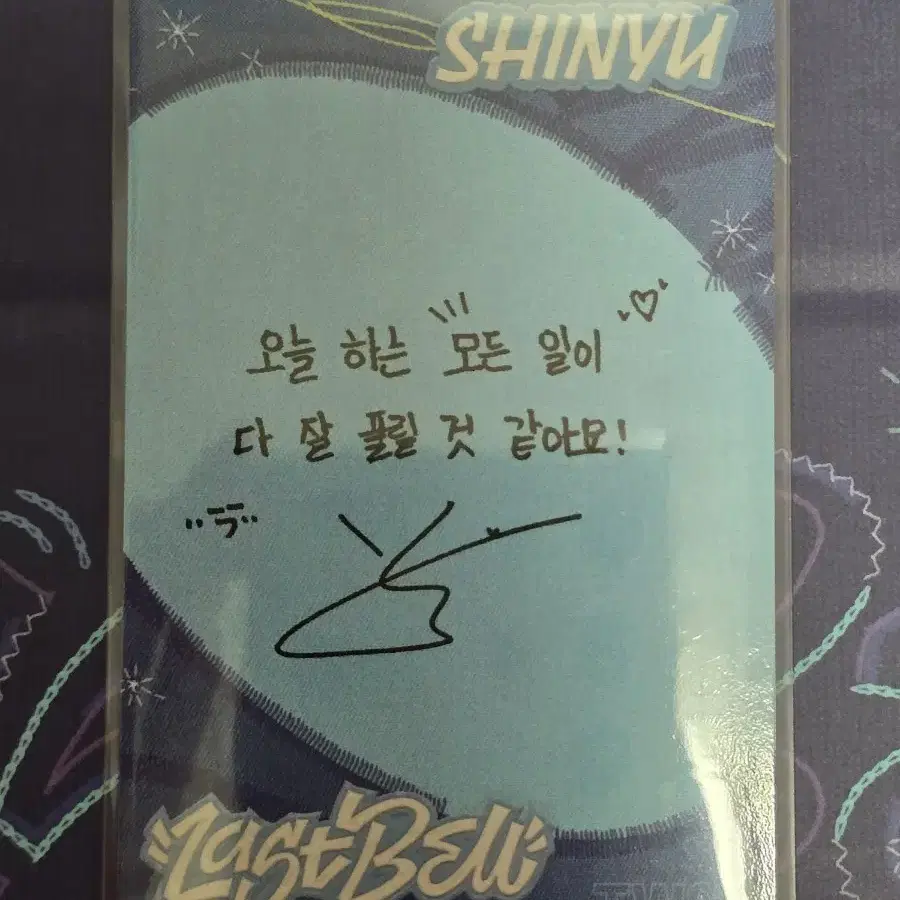 SHINYU
오늘 하는 모든 일이
다 잘 풀릴 것 같아묘!
Last Bell